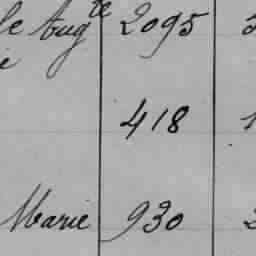 le Aug te 2095
418
Marie 930